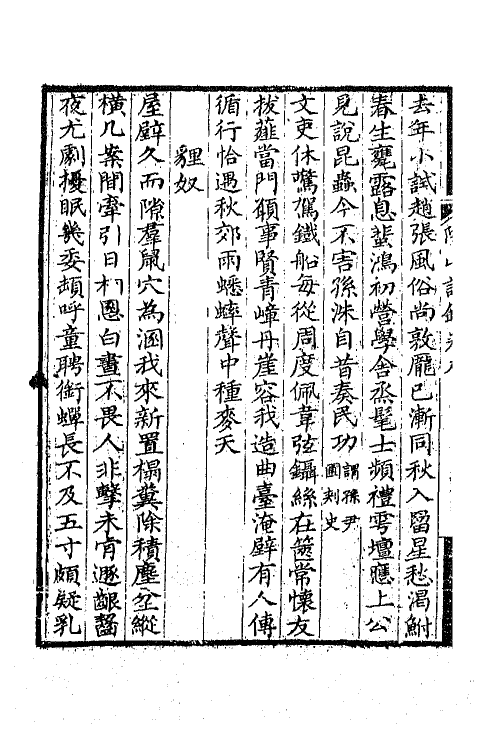 去年小試趙張風俗尚敦龐已漸同秋入罶星愁涸鮒
春生甕露息蜚鴻初營學舍烝髦士頻禮雩壇應上公
見說昆蟲今不害孫洙自昔奏民功謂孫尹圖刺史
文吏休驚駕鐵船每從周度佩韋弦鑷絲在篋常懷友
拔薤當門願事賢青嶂丹崖容我造曲臺淹壁有人傳
循行恰遇秋郊雨蟋蟀聲中種麥天
貍奴
屋壁久而隙羣鼠穴為溷我來新置榻糞除積塵坌縱
橫几案間牽引日相恩白晝不畏人非擊未肯遯齦齧
夜尤劇擾眠幾委頓呼童聘銜蟬長不及五寸頗疑乳